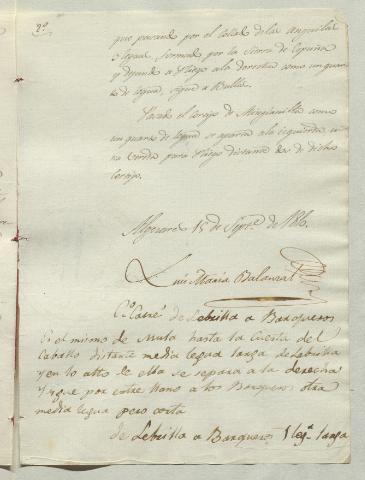 2º
que pasando por el Collado de las Anguilas
llegua, formado por la Sierra de Espuña
y dejando a Pliego a la derecha como un quar
to de legua, sigue a Bullas.
Pasado el cortijo de Manzanilla como
un quarto de legua se aparta a la izquierda
na vereda para Pliego distante dos de dicho
Cortijo.
Algezares 15 de Septe. de 1816.
Luis Maria Balanzat
Co. Carre. de Lebrilla a Barqueros
Es el mismo de Mula hasta la Cuesta del
Caballo distante media legua larga de Lebrilla
y en lo alto de ella se separa a la derecha
y sigue por entre llano a los Barqueros otra
media legua pero corta
de Lebrilla a Barqueros 1 lega. larga